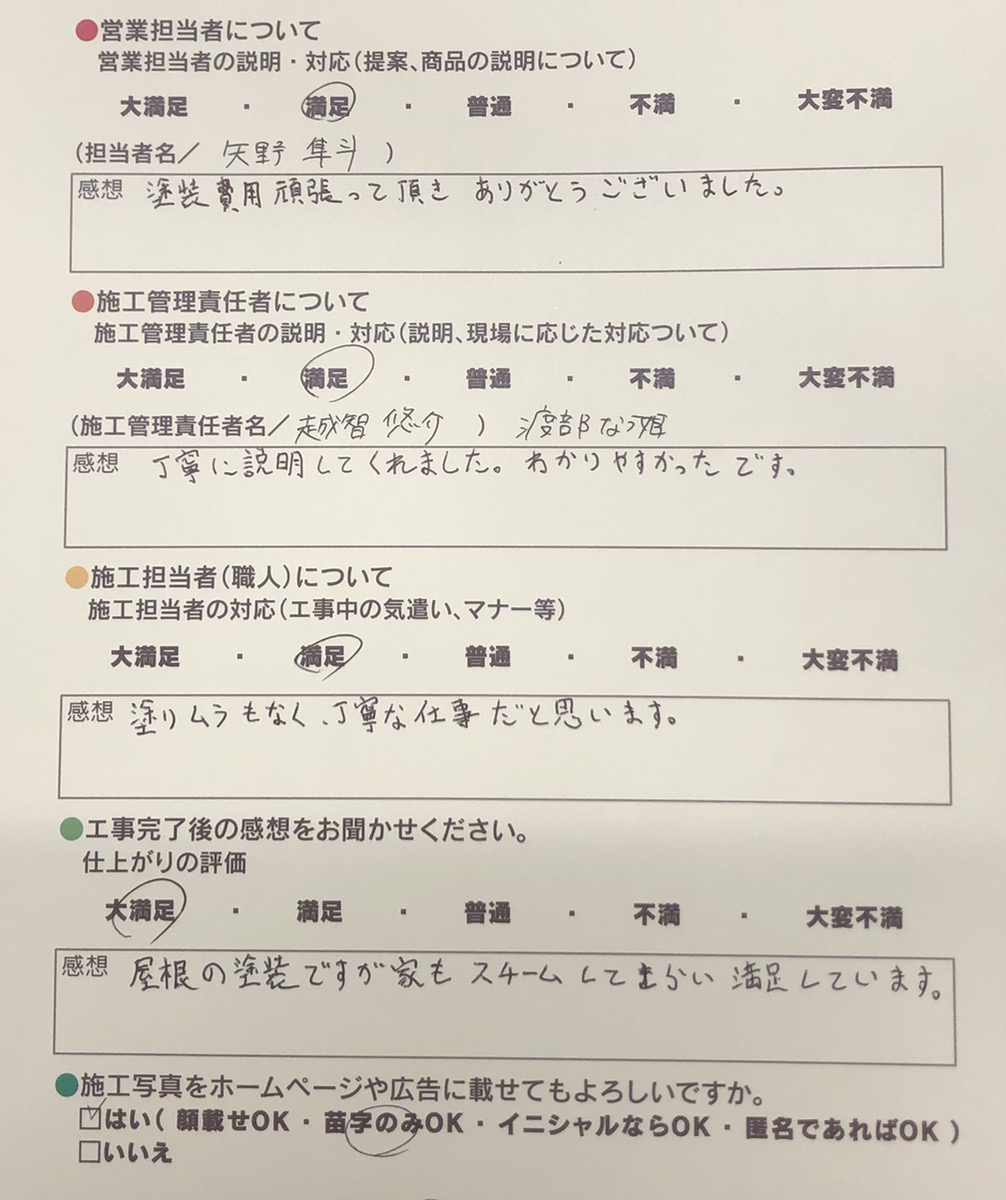 ●営業担当者について
営業担当者の説明・対応(提案、商品の説明について)
大満足 ・ 満足 ・ 普通 ・ 不満 ・ 大変不満
(担当者名／ 矢野 隼斗 )
感想 塗装費用頑張って頂き ありがとうございました。
●施工管理責任者について
施工管理責任者の説明・対応(説明、現場に応じた対応ついて)
大満足 ・ 満足 ・ 普通 ・ 不満 ・ 大変不満
(施工管理責任者名／ 越智 悠介 ) 渡部
感想 丁寧に説明してくれました。わかりやすかったです。
●施工担当者(職人)について
施工担当者の対応(工事中の気遣い、マナー等)
大満足 ・ 満足 ・ 普通 ・ 不満 ・ 大変不満
感想 塗りムラもなく、丁寧な仕事だと思います。
●工事完了後の感想をお聞かせください。
仕上がりの評価
大満足 ・ 満足 ・ 普通 ・ 不満 ・ 大変不満
感想 屋根の塗装ですが家も スチームしてもらい 満足しています。
●施工写真をホームページや広告に載せてもよろしいですか。
☑はい( 顔載せOK ・ 苗字のみOK ・ イニシャルならOK ・ 匿名であればOK )
□いいえ